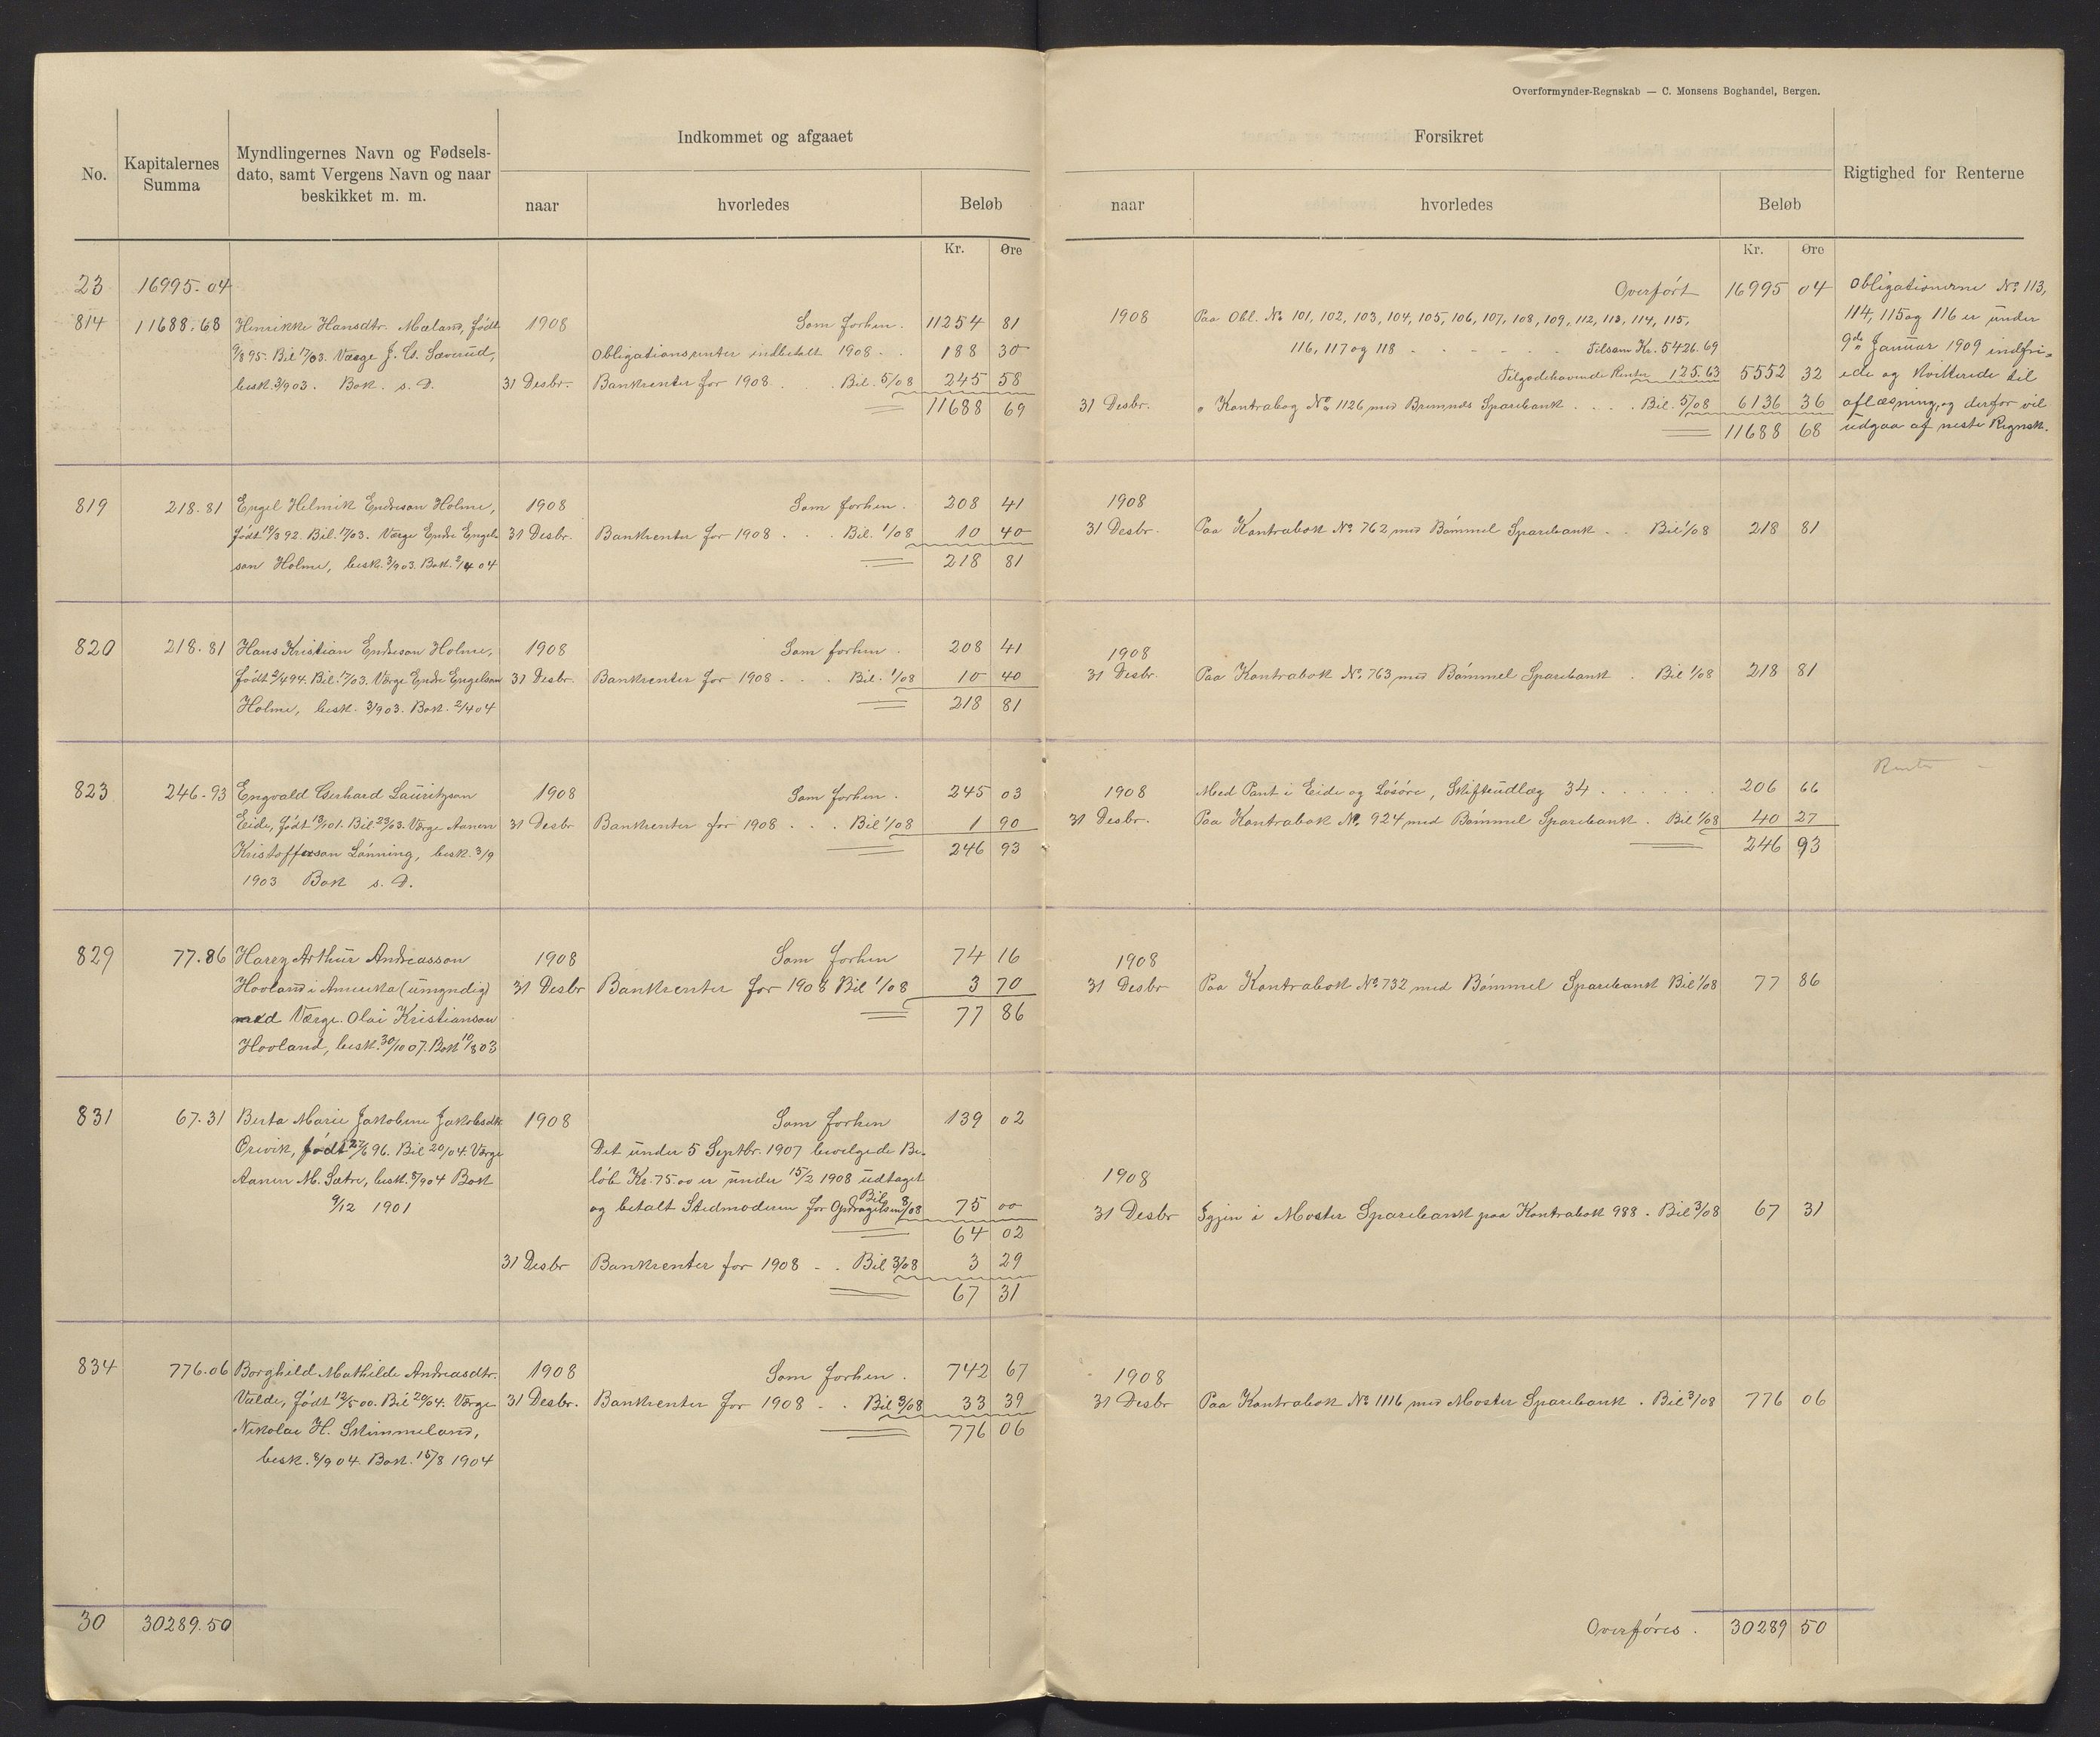 Overformynder-Regnskab — C. Monsens Boghandel, Bergen.
No.
Kapitalernes Summa
Myndlingernes Navn og Fødsels-
dato, samt Vergens Navn og naar
beskikket m. m.
Indkommet og afgaaet
naar hvorledes Beløb
Kr. Øre
Forsikret
naar hvorledes Beløb
Kr. Øre
Rigtighed for Renterne
23 16995.04
814 11688.68 Henrikke Hansdtr. Mæland, født 1908 Som forhen. 11254 81
9/8 95. Bil 17/03. Værge J. Sæverud, Obligationsrenter indbetalt 1908 . . 188 30
besk. 3/9 03. Bok. s. D. 31 Desbr. Bankrenter for 1908 . . Bil. 5/08 245 58
11688 69
Overført 16995 04
1908 Paa Obl. No 101, 102, 103, 104, 105, 106, 107, 108, 109, 112, 113, 114, 115,
116, 117 og 118 - - - - - Tilsam Kr. 5426.69
Tilgodehavende Renter 125.63 5552 32
31 Desbr. " Kontrabog No 1126 med Bremnes Sparebank . . . Bil. 5/08 6136 36
11688 68
Obligationerne No 113,
114, 115 og 116 er under
9de Januar 1909 indfri-
ede og kvitterede til
aflæsning, og derfor vil
udgaa af neste Regnsk.
819 218.81 Engel Helmik Endreson Holme, 1908 Som forhen. 208 41
født 19/3 92. Bil. 17/03. Værge Endre Engel- 31 Desbr. Bankrenter for 1908 . . . Bil. 1/08 10 40
son Holme, besk. 3/9 03. Bok. 2/4 04 218 81
1908
31 Desbr. Paa Kontrabok No 762 med Bømmel Sparebank . . Bil 1/08 218 81
820 218.81 Hans Kristian Endreson Holme, 1908 Som forhen . 208 41
født 2/4 94. Bil. 17/03. Værge Endre Engelson 31 Desbr. Bankrenter for 1908 . . . Bil. 1/08 10 40
Holme, besk. 3/9 03. Bok. 2/4 04 218 81
1908
31 Desbr. Paa Kontrabok No 763 med Bømmel Sparebank . Bil 1/08 218 81
823 246.93 Engvald Gerhard Lauritzson 1908 Som forhen . 245 03
Eide, født 13/1 01. Bil. 23/03. Værge Aanen 31 Desbr Bankrenter for 1908 . . . Bil 1/08 1 90
Kristofferson Lønning, besk. 3/9 246 93
1903 Bok s. D.
Renter
1908 Med Pant i Eide og Løsøre, Skifteudlæg 34 . . . . . 206 66
31 Desbr. Paa Kontrabok No 924 med Bømmel Sparebank . Bil 1/08 40 27
246 93
829 77.86 Harry Arthur Andreasson 1908 Som forhen 74 16
Hovland i Amerika (umyndig) 31 Desbr Bankrenter for 1908 Bil 1/08 3 70
med Værge. Olai Kristianson 77 86
Hovland, besk. 30/10 07. Bok 10/8 03
1908
31 Desbr Paa Kontrabok No 732 med Bømmel Sparebank Bil 1/08 77 86
831 67.31 Berta Marie Jakobine Jakobsdtr 1908 Som forhen 139 02
Ørevik, født 27/6 96. Bil 20/04. Værge Det under 5 Septbr. 1907 bevilgede Be-
Aanen M. Sætre, besk. 8/9 04 Bok løb Kr. 75.00 er under 15/2 1908 udtaget
9/12 1901 og betalt Stedmoderen for Opdragelsen Bil 8/08 75 00
64 02
31 Desbr Bankrenter for 1908 - . Bil 3/08 3 29
67 31
1908
31 Desbr Igjen i Moster Sparebank paa Kontrabok 988 . Bil 3/08 67 31
834 776.06 Borghild Mathilde Andreasdtr. 1908 Som forhen . 742 67
Vælde, født 12/5 00. Bil 20/04. Værge 31 Desbr. Bankrenter for 1908 - . Bil 3/08 33 39
Nikolai H. Skimmeland, 776 06
besk. 8/9 04. Bok. 15/8 1904
1908
31 Desbr Paa Kontrabok No 1116 med Moster Sparebank . Bil 3/08 776 06
30 30289.50
Overføres . 30289 50